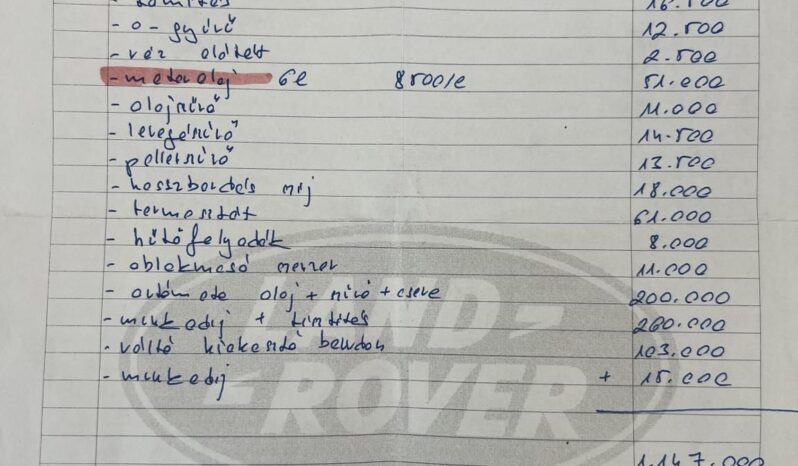 - tömítés 16.500
- o-gyűrű 12.500
- véz oldat 2.500
- motorolaj 6l 8500/l 51.000
- olajszűrő 11.000
- levegőszűrő 14.500
- pollenszűrő 13.500
- hosszbordás szíj 18.000
- termosztát 61.000
- hűtőfolyadék 8.000
- ablakmosó 11.000
- automata olaj + szűrő + csere 200.000
- munkadíj + tömítés 260.000
- váltó 103.000
- munkadíj + 15.000
1.147.000
LAND
ROVER